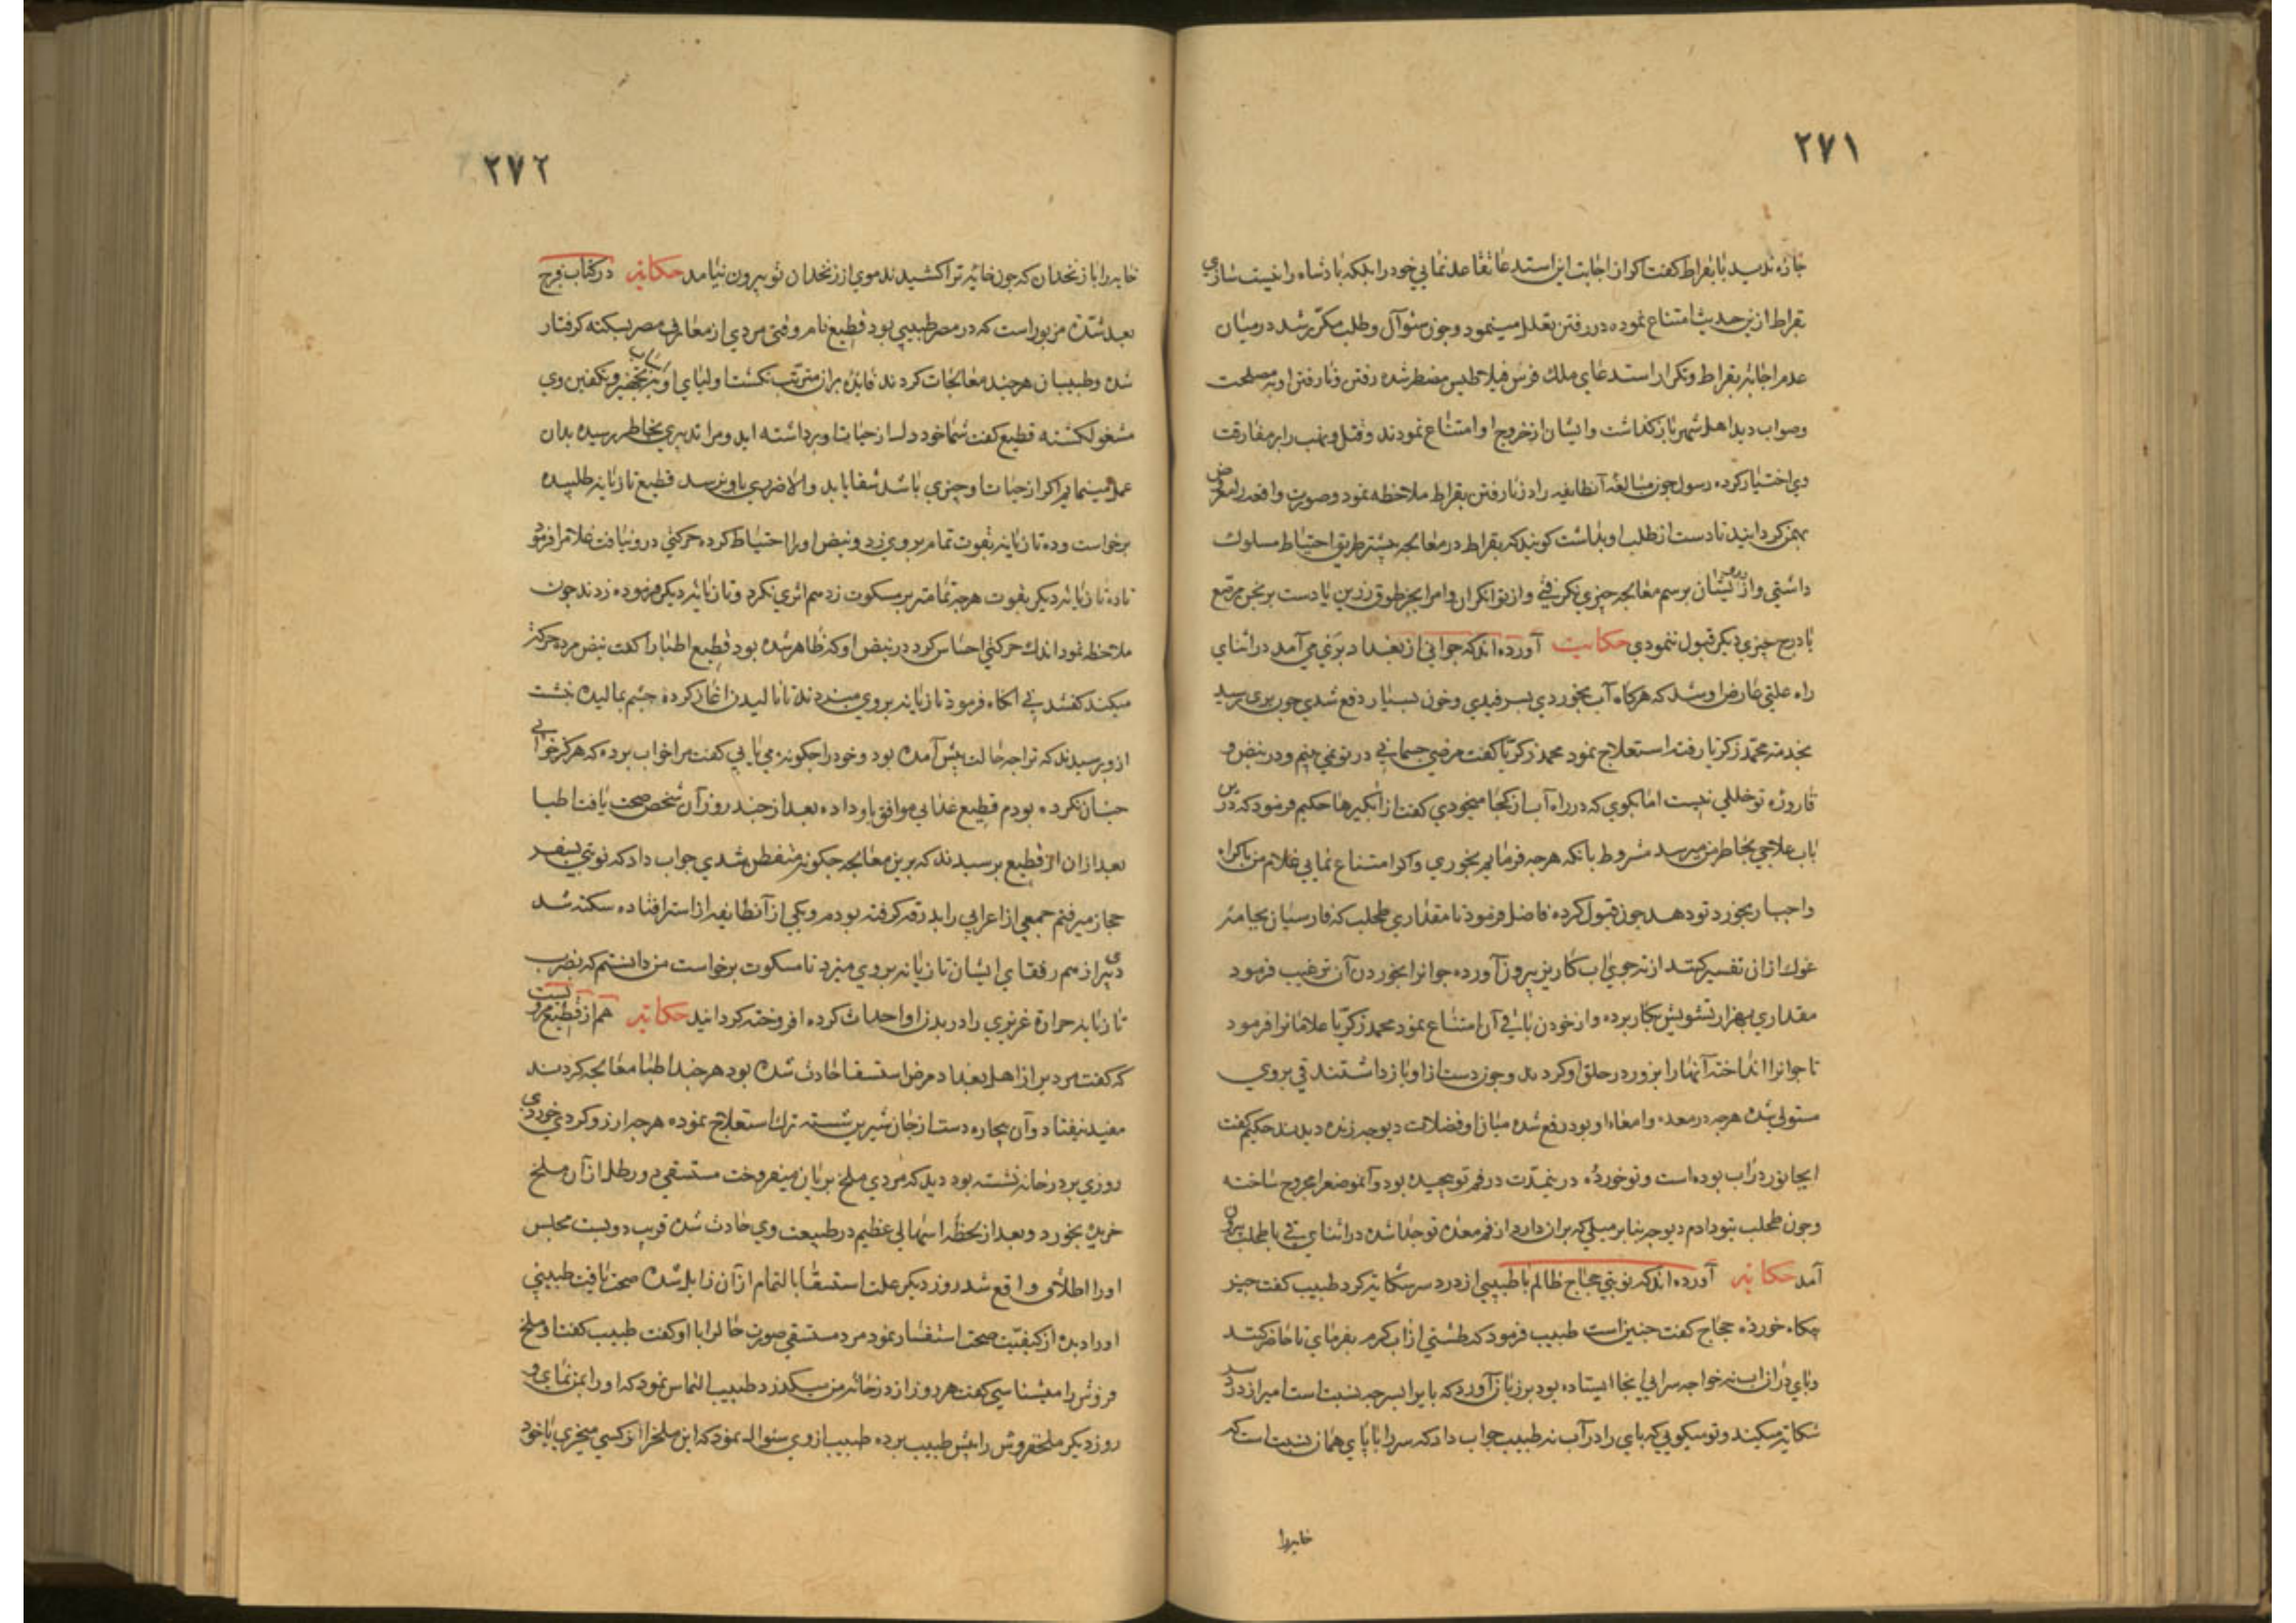 ۲۷۱
چاره ندید با بقراط گفت اکر از اجابت این استدعا تقاعد نمایی خود را بلکه پادشاه را خسیت سازی
بقراط ازین حدیث امتناع نموده در رفتن تعلل مینمود و چون سئوال و طلب مکرّر شد در میان
عدم اجابه بقراط و تکرار استدعای ملك فرس فیلاطیس مضطر شده رفتن و نارفتن او به مصلحت
وصواب دید اهل شهر باز کذاشت و ایشان از خروج او امتناع نمودند و قتل و نهب را بر مفارقت
وی اختیار کرده رسول چون مبالغه آنطایفه را در نارفتن بقراط ملاحظه نمود و صورت واقعه را معروض
بهمن کردانید تا دست از طلب او بداشت کویند که بقراط در معالجه بیشتر طریق احتیاط مسلوك
داشتی و از درویشان برسم معالجه چیزی نکرفتی و از توانکران و امرا بجز طوق زرین یا دست برنجن مرصّع
یا درج چیزی دیکر قبول ننمودی حکایت آورده اند که جوانی از بغداد برَی می آمد در اثنای
راه علتی عارض او شد که هرکاه آب بخوردی بسرفیدی و خون بسیار دفع شدی چون بری رسید
بخدمت محمّد زکریا رفته استعلاج نمود محمد زکریا کفت مرضی جسمانی در تو نمی بینم و در نبض و
قاروره تو خللی نیست اما بکوی که در راه آب از کجا میخوردی کفت از آبکیرها حکیم فرمود که درین
باب علاجی بخاطر من میرسد مشروط بانکه هرچه فرمایم بخوری و اکر امتناع نمایی غلام من باکراه
واجبار بخورد تو دهد چون قبول کرد فاضل فرمود تا مقداری طحلب که فارسیان بجامه
غوك از ان تفسیر کنند از ته جوی اب کاریز بیرون آورده جوانرا بخوردن آن ترغیب فرمود
مقداری بهزار تشویش بکار برده و از خوردن باقی آن امتناع نمود محمد زکریا غلامانرا فرمود
تا جوانرا انداخته آنها را بزور در حلق او کردند و چون دست از او باز داشتند قی بروی
مستولی شده هرچه در معده و امعاء او بود رفع شده میان او فضلات دیوچه زنده دیدند حکیم کفت
این جانور در آب بوده است و تو خورده در ینمدّت در فم تو چپیده بود و آنموضع را مجروح ساخته
و چون طحلب بتو دادم دیوچه بنا بر میلی که بران دارد از فم معده تو جدا شده در اثنای قی با طحلب بیرون
آمد حکایته آورده اند که نوبتی حجاج ظالم با طبیبی از درد سر شکایت کرد طبیب کفت چیز
چکاه خورده حجاج کفت چنین است طبیب فرمود که طشتی از آب کرم بفرمای تا حاضر کنند
و پای در ان اب نه خواجه سرایی انجا ایستاده بود بر زبان آورد که پای را بسر چه نسبت است امیر از درد سر
شکایته میکند و تو میکویی که پای را در آب نه طبیب جواب داد که سر را با پای همان نسبت است که
خایه را
۲۷۲
خایه را با زنخدان که چون خایه ترا کشیدند موی از زنخدان تو بیرون نیامد حکایته در کتاب فرج
بعد شدّة مزبور است که در مصر طبیبی بود قطیع نام و قتی مردی از معارف مصر بسکته کرفتار
شده و طبیبان هرچند معالجات کردند فایده بران مترتّب نکشت اولیای او باسباب تجهیز و تکفین وی
مشغول کشتند قطیع کفت شما خود دل از حیات او برداشته اید و مرا تدبیری بخاطر رسیده بدان
عمل مینمایم اکر از حیات او چیزی باشد شفا یابد و الا ضرری باو نرسد قطیع تازیانه طلبیده
برخواست و ده تازیانه بقوت تمام بر وی زد و نبض او را احتیاط کرده حرکتی در و نیافت غلامرا فرمود
تا ده تازیانه دیکر بقوت هرچه تمامتر بر مسکوت زد هم اثری نکرد و تازیانه دیکر فرموده زدند چون
ملاحظه نمود اندك حرکتی احساس کرد در نبض او که ظاهر شده بود قطیع اطبا را کفت نبض مرده حرکة
میکند کفتند نی انکاه فرمود تا زیانه بروی میزدند تا نالیدن اغاز کرده چشم بمالید و بنشست
ازو پرسیدند که ترا چه حالت پیش آمده بود و خود را چکونه می یابی کفت مرا خواب برده که هرکز خوابی
چنان نکرده بودم قطیع غذایی موافق باو داده بعد از چند روز آن شخص صحت یافت اطبا
بعد ازان از قطیع پرسیدند که برین معالجه چکونه متفطن شدی جواب داد که نوبتی بسفر
حجاز میرفتم جمعی از اعرابی را بدرقه کرفته بودم و یکی از آنطایفه از استر افتاده سکته شد
دیری از هم رفقای ایشان تازیانه بروی میزد تا مسکوت برخواست من دانستم که بضرب
تازیانه حرارة غریزی را در بدن او احداث کرده افروخته کردانید حکایته هم از قطیع مرویست
که کفت مردیرا از اهل بغداد مرض استسقا حادث شده بود هرچند اطبا معالجه کردند
مفید نیفتاد و آن بیچاره دست از جان شیرین شسته ترك استعلاج نموده هرچه ارزو کردی خوردی
روزی بر در خانه نشسته بود دید که مردی ملخ بریان میفروخت مستسقی دو رطل از آن ملخ
خریده بخورد و بعد از لحظه اسهالی عظیم در طبیعت وی حادث شده قریب دویست مجلس
او را اطلاق واقع شد روز دیکر علت استسقا بالتمام از آن زایل شده صحت یافت طبیبی
او را دیده از کیفیّت صحت استفسار نمود مرد مستسقی صورت حال را با او کفت طبیب کفت او ملخ
فروش را میشناسی کفت هر روز از در خانه من میکذرد طبیب التماس نمود که او را بمن نمای و
روز دیکر ملخفروش را پیش طبیب برده طبیب از وی سئوال نمود که این ملخ را از کسی میخری یا خود